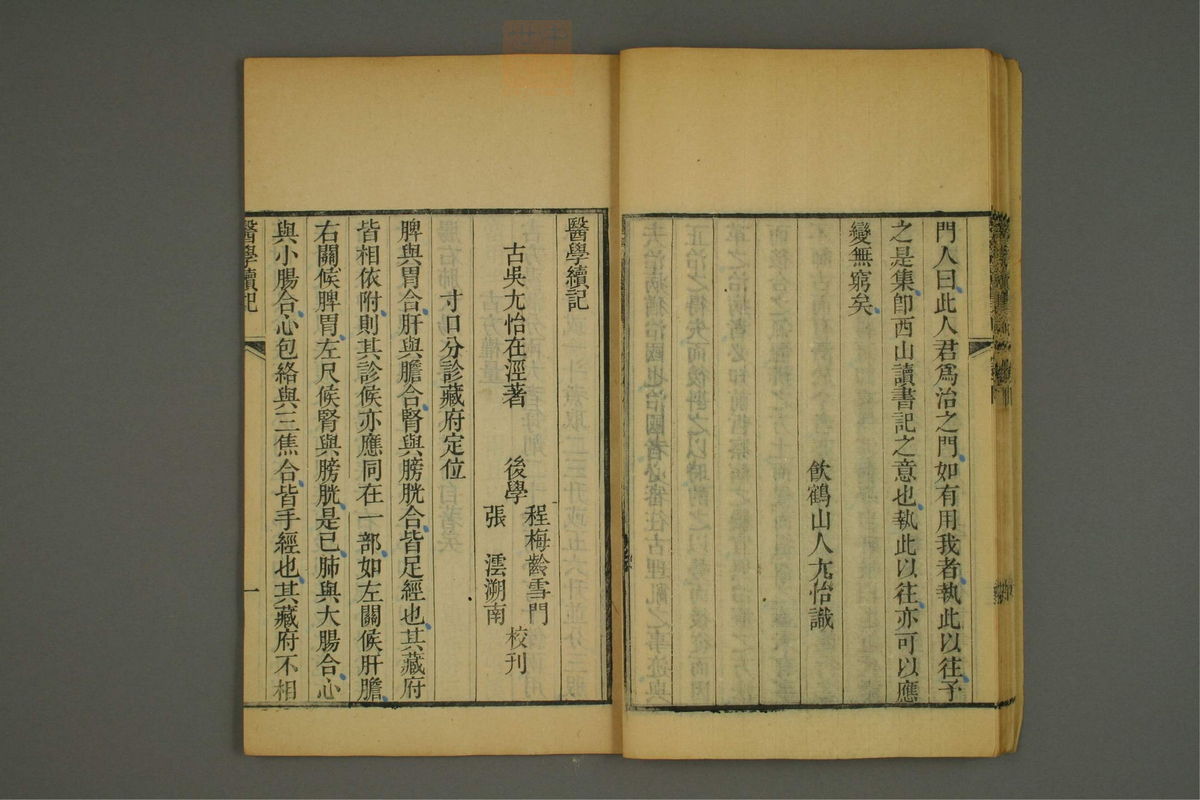 門人曰此人君爲治之門如有用我者執此以往予
之是集卽西山讀書記之意也執此以往亦可以應
變無窮矣
飲鶴山人尤怡識
醫學續記
古吳尤怡在涇著
後學
程梅齡雪門
張 澐溯南
校刊
寸口分診藏府定位
脾與胃合肝與膽合腎與膀胱合皆足經也其藏府
皆相依附則其診候亦應同在一部如左關候肝膽
右關候脾胃左尺候腎與膀胱是已肺與大腸合心
與小腸合心包絡與三焦合皆手經也其藏府不相
醫學續記
一